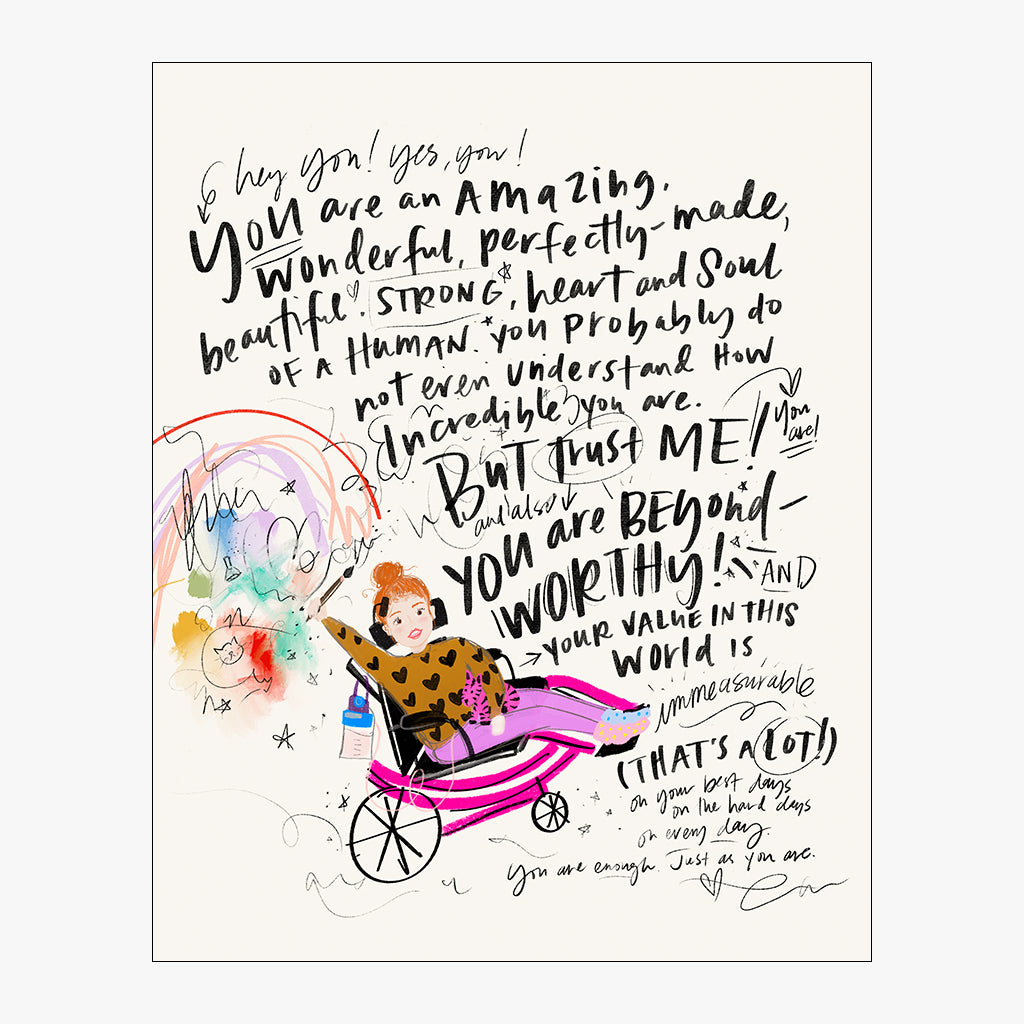 hey you! yes, you!
you are an amazing.
wonderful, perfectly-made,
beautiful. STRONG, heart and Soul
OF A HUMAN. you probably do
not even understand HOW
Incredible you are.
BUT trust ME!
you are!
and also
you are BEyond-
WORTHy!
AND
YOUR VALUE IN THIS
WORLD IS
immeasurable
(THAT'S A LOT!)
on your best days
on the hard days
on every day.
you are enough. Just as you are.